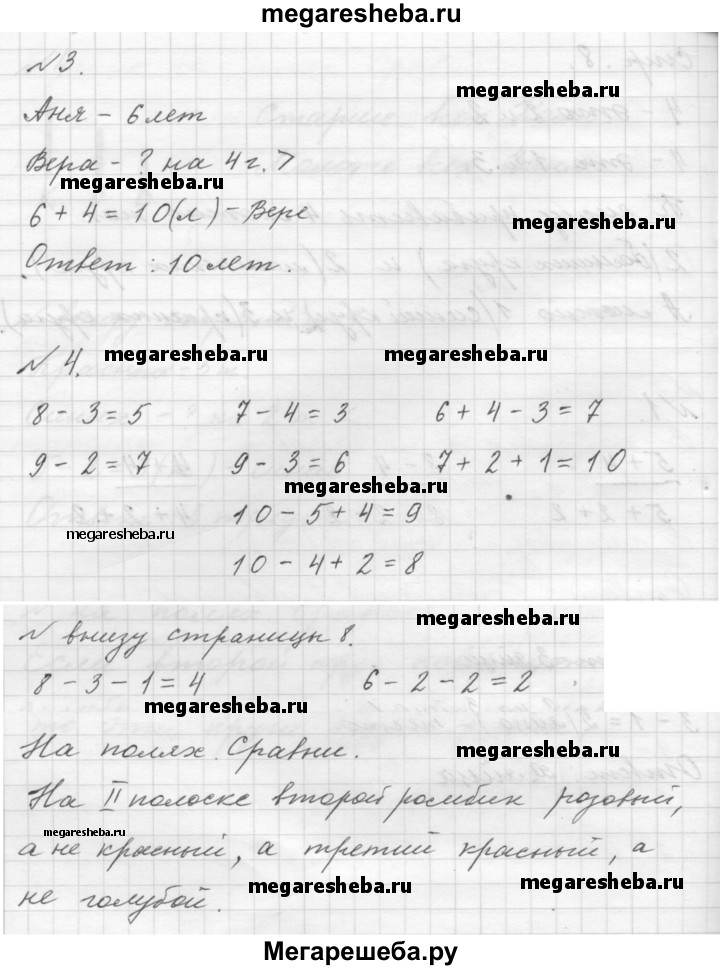 megaresheba.ru
№3.
megaresheba.ru
Аня – 6 лет
Вера – ? на 4 г. >
megaresheba.ru
6 + 4 = 10(л) – Вере
megaresheba.ru
Ответ: 10 лет.
№ 4.
megaresheba.ru megaresheba.ru
8 - 3 = 5 7 - 4 = 3 6 + 4 - 3 = 7
9 - 2 = 7 9 - 3 = 6 7 + 2 + 1 = 10
megaresheba.ru
10 - 5 + 4 = 9
megaresheba.ru
10 - 4 + 2 = 8
megaresheba.ru
№ внизу страницы 8.
8 - 3 - 1 = 4 6 - 2 - 2 = 2
megaresheba.ru
На полях. Сравни.
megaresheba.ru
На II полоске второй ромбик розовый,
megaresheba.ru
а не красный, а третий красный, а
megaresheba.ru megaresheba.ru
не голубой.
Мегарешеба.ру